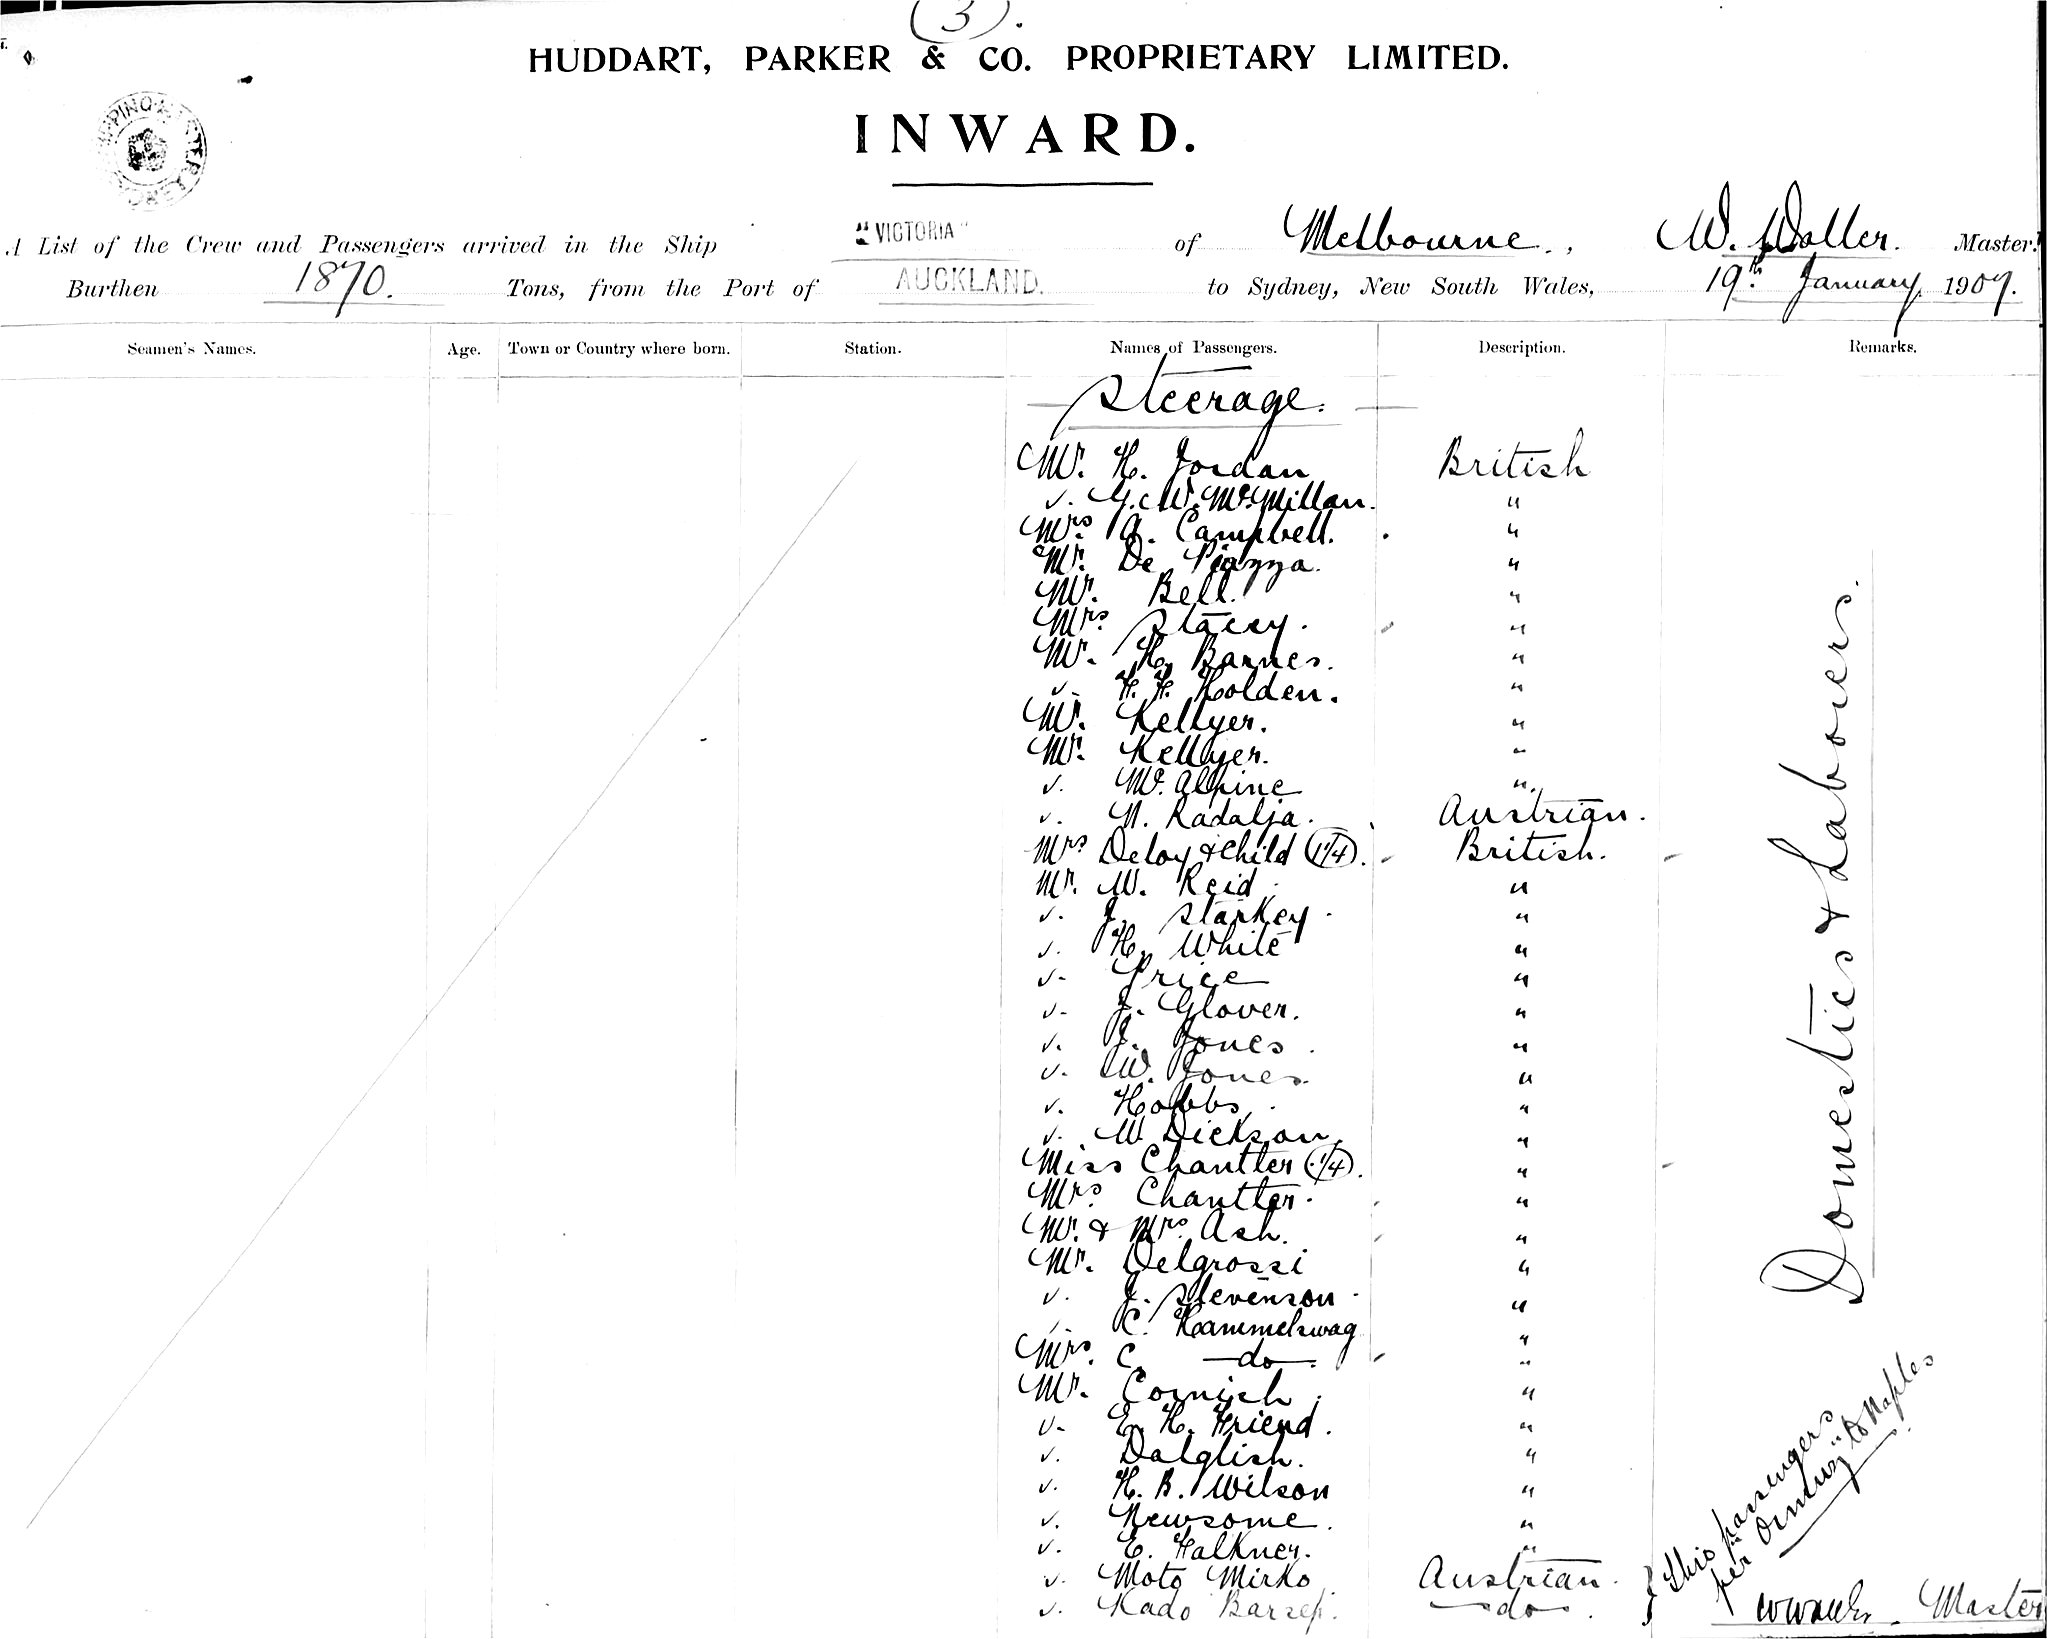 (3).
HUDDART, PARKER & CO. PROPRIETARY LIMITED.
INWARD.
A List of the Crew and Passengers arrived in the Ship "VICTORIA" of Melbourne, W. Waller. Master.
Burthen 1870. Tons, from the Port of AUCKLAND. to Sydney, New South Wales, 19th January, 1907.
Seamen's Names. Age. Town or Country where born. Station. Names of Passengers. Description. Remarks.
Steerage.
Mr. H. Jordan British
". G. W. McMillan. "
Mrs. A. Campbell. "
Mr. De Piazza. "
Mr. Bell. "
Mrs. Stacey. "
Mr. H. Barnes. "
". F. F. Holden. "
Mr. Kellyer. "
Mr. Kellyer. "
". McAlpine "
". N. Radalja. Austrian.
Mrs Deloy & Child (1/4). British.
Mr. W. Reid. "
". J. Starkey. "
". H. White "
". Price "
". J. Glover. "
". J. Jones. "
". W. Jones. "
". Hobbs. "
". W Dickson. "
Miss Chantler (1/4). "
Mrs. Chantler. "
Mr. & Mrs. Ash. "
Mr. Delgrossi "
". J. Stevenson. "
". C. Hammelswag "
Mrs. C. —do—. "
Mr. Cornish. "
". E. H. Friend. "
". Dalglish. "
". H. B. Wilson "
". Newsome. "
". E. Falkner. "
". Moto Mirko Austrian.
". Kado Barsep. —do—.
Domestics & Labourers.
This passengers
per "Ormuz" to Naples.
Master